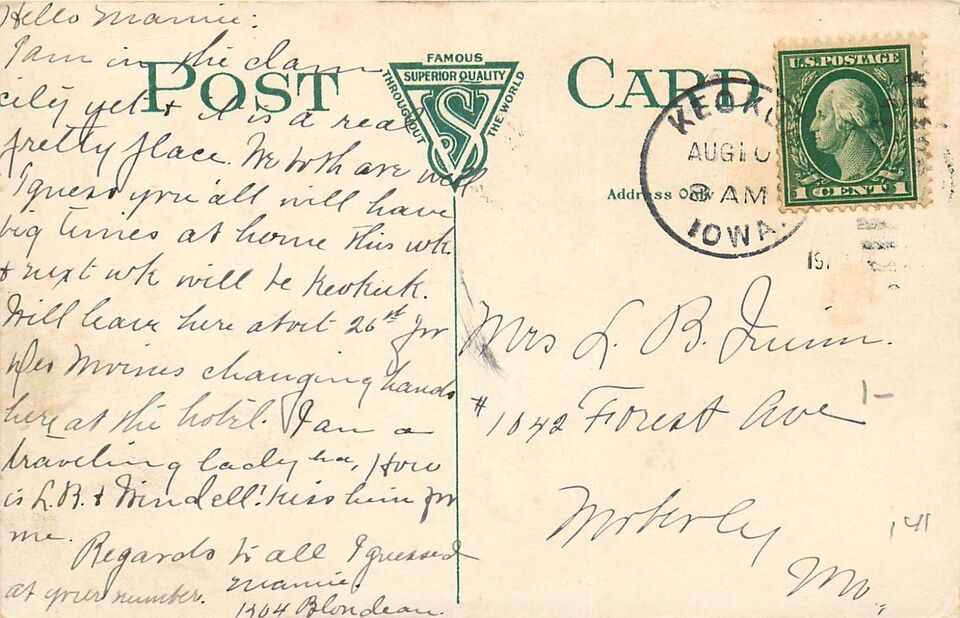 Hello Mamie:
I am in the clam
city yet & it is a real
pretty place. We both are well
I guess you'all will have
big times at home this wk.
& next wk will be Keokuk.
Will leave here about 26st for
Des Moines changing hands
here at the hotel. I am a
traveling lady ha, How
is L.B. & Windell! Kiss him for
me.
Regards to all I guessed
at your number. Mamie.
1304 Blondeau.
POST CARD
FAMOUS
SUPERIOR QUALITY
THROUGHOUT THE WORLD
S
Address Only
KEOKU
AUG 10
8 AM
IOWA.
191
U.S. POSTAGE
1 CENT 1
Mrs L. B. Quinn.
# 1042 Forest Ave
Moberly
Mo.
1-
141